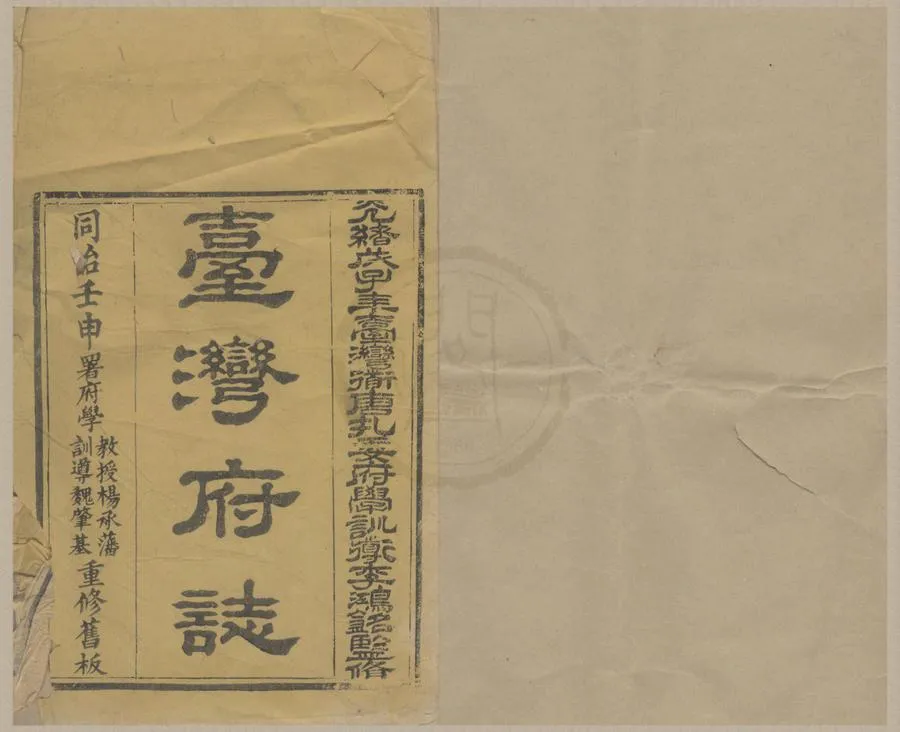 光緒戊子年臺灣衜唐札委府學訓導李鴻銘監脩
臺灣府誌
同治壬申署府學
教授楊承藩
訓導魏肇基
重修舊板